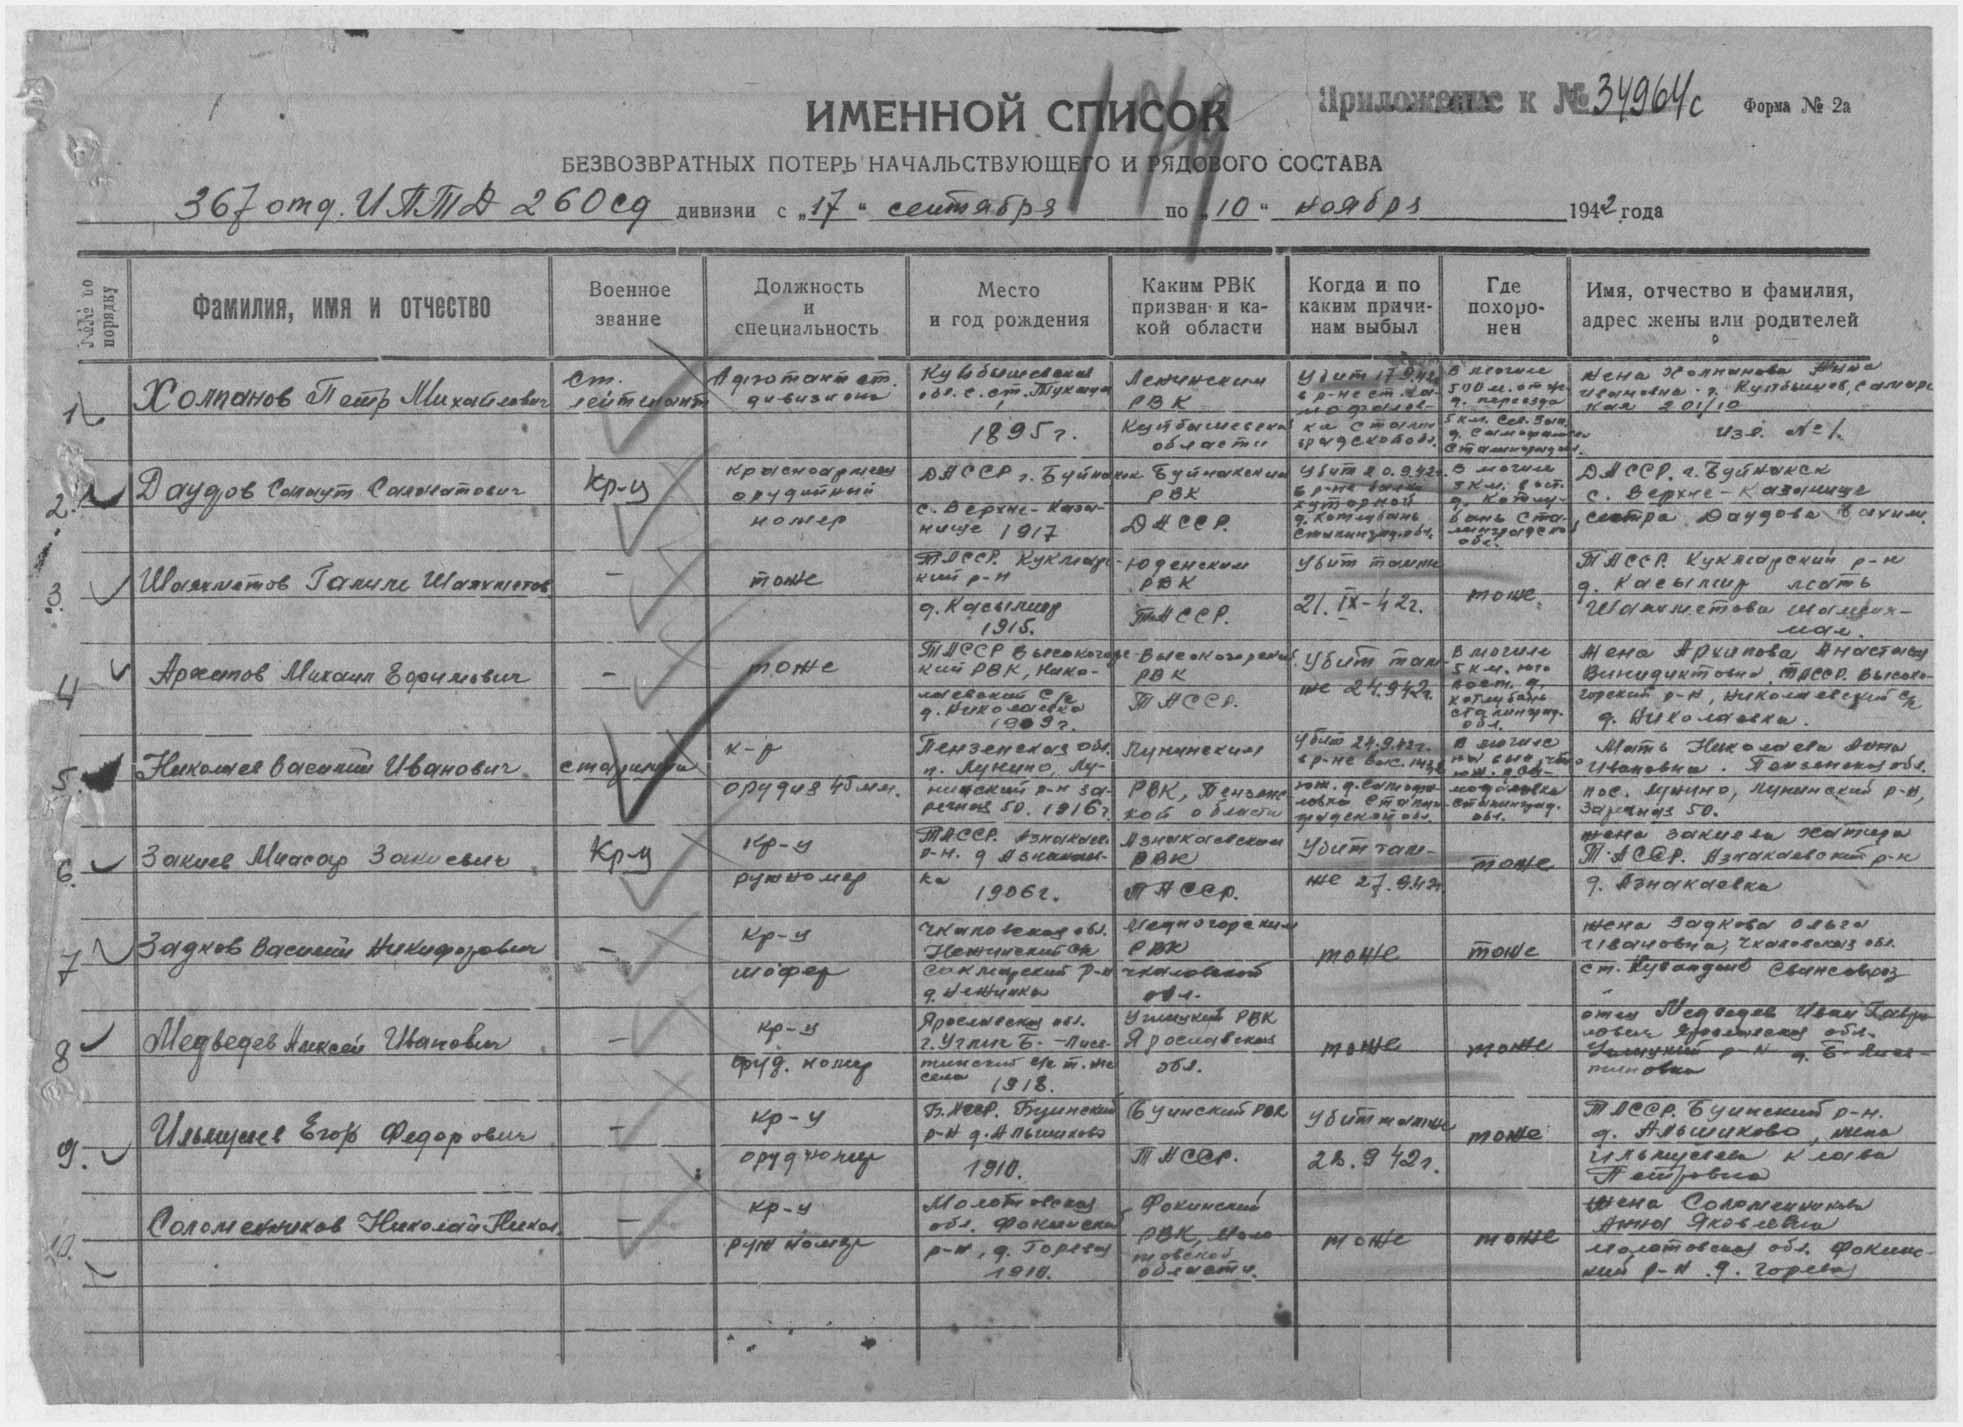 Приложение к № 34964с Форма № 2а
1419
ИМЕННОЙ СПИСОК
БЕЗВОЗВРАТНЫХ ПОТЕРЬ НАЧАЛЬСТВУЮЩЕГО И РЯДОВОГО СОСТАВА
367 отд. ИПТД 260 сд дивизии с „17“ сентября по „10“ ноября 1942 года
№№ по порядку
Фамилия, имя и отчество
Военное звание
Должность и специальность
Место и год рождения
Каким РВК призван и какой области
Когда и по каким причинам выбыл
Где похоронен
Имя, отчество и фамилия, адрес жены или родителей
1
Холпанов Петр Михайлович
Ст. лейтенант
Адютант ст. дивизиона
Куйбышевская обл. с. ст.
1895 г.
Ленинским РВК
Куйбышевской области
Убит 17.9.42г.
в р-не ст.
В могиле 500 м. от ж.д. переезда
5 км. сев. зап.
жена Холпанова
Ивановна г. Куйбышев, Самарская 201/10
изв. № 1.
2.
Даудов
Кр-ц
красноармеец
орудийный
номер
ДАССР г. Буйнакск
с. Верхне-Казанище 1917
Буйнакским РВК
ДАССР.
Убит 20.9.42г.
в р-не балки
хуторной
д. Котлубань
Сталинград. обл.
В могиле
3 км. вост.
д. Котлубань Сталинградской обл.
ДАССР. г. Буйнакск
с. Верхне-Казанище
сестра Даудова
3.
Шаяхметов
-
тоже
ТАССР. Кукмарский р-н
1915.
РВК
ТАССР.
Убит там же
21. IX-42г.
тоже
ТАССР. Кукмарский р-н
мать
Шаяхметова
4
Архипов Михаил Ефимович
-
тоже
ТАССР Высокогорский РВК, Николаевский с/с
д. Николаевка
1909 г.
Высокогорский РВК
ТАССР.
Убит там же 24.9.42г.
В могиле
5 км. юго
вост. д.
Котлубань
Сталинград. обл.
Жена Архипова Анастасия
ТАССР. Высокогорский р-н, Николаевский с/с
д. Николаевка.
5.
Николаев Василий Иванович
старшина
к-р
орудия 45 мм.
Пензенская обл.
п. Лунино, Лунинский р-н Заречная 50. 1916 г.
Лунинским
РВК, Пензенской области
Убит 24.9.42г.
в р-не выс.
В могиле
Мать Николаева Анна
Ивановна. Пензенская обл.
пос. Лунино, Лунинский р-н,
Заречная 50.
6.
Закиев Закиевич
Кр-ц
Кр-ц
ружномер
ТАССР. Азнакаев.
р-н. д Азнакаевка
1906 г.
Азнакаевским
РВК
ТАССР.
Убит там
же 27.9.42г.
тоже
жена Закиева
ТАССР. Азнакаевский р-н
д. Азнакаевка
7
Задков Василий Никифорович
-
Кр-ц
шофер
Чкаловская обл.
Нежинский с/с
Сакмарский р-н
д. Нежинка
Медногорским
РВК
Чкаловской
обл.
тоже
тоже
жена Задкова Ольга
Ивановна, Чкаловская обл.
ст. Кувандык
8
Медведев Алексей Иванович
Кр-ц
оруд. номер
Ярославская обл.
г. Углич
1918.
Углицкий РВК
Ярославская
обл.
тоже
тоже
отец Медведев Иван
Ярославская обл.
Углицкий р-н
9.
Егор Федорович
-
Кр-ц
оруд номер
Буинский
р-н д. Альшихово
1910.
Буинский РВК
ТАССР.
Убит там же
28.9 42г.
тоже
ТАССР. Буинский р-н.
д. Альшихово, жена
Клава
Петровна
10.
Соломенников Николай Никол.
-
Кр-ц
руж номер
Молотовская
обл. Фокинский
р-н, д. Горевая
1910.
Фокинский
РВК, Молотовской
области.
тоже
тоже
жена Соломенникова
Анна Яковлевна
Молотовская обл. Фокинский р-н д. Горевая